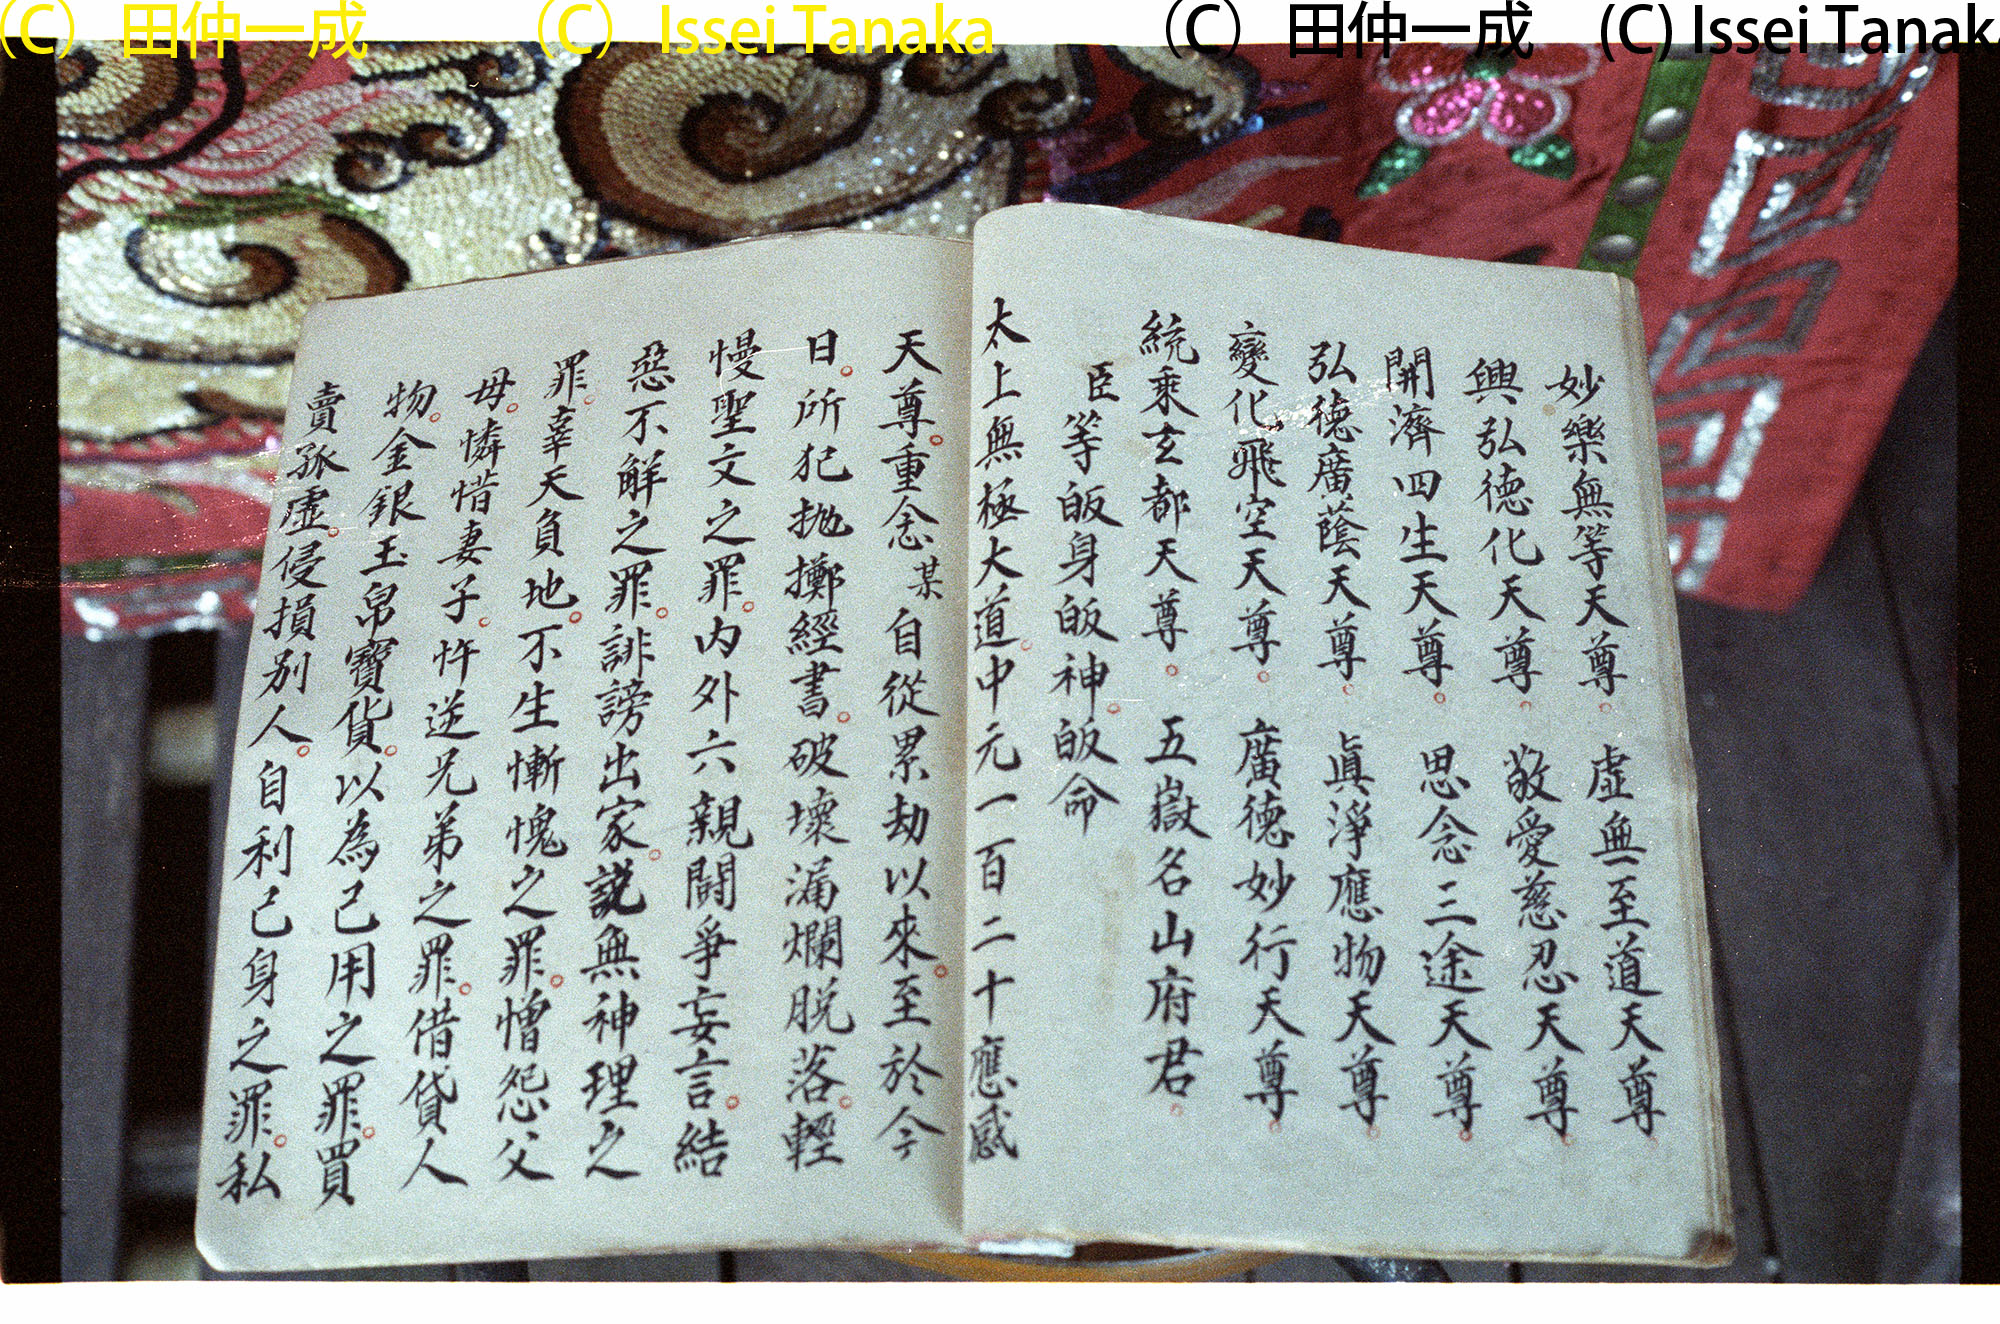 (C) 田仲一成 (C) Issei Tanaka (C) 田仲一成 (C) Issei Tanaka
妙樂無等天尊。虛無至道天尊。
興弘德化天尊。敬愛慈忍天尊。
開濟四生天尊。思念三途天尊。
弘德廣蔭天尊。眞淨應物天尊。
變化飛空天尊。廣德妙行天尊。
統乘玄都天尊。五嶽名山府君。
臣等皈身皈神。皈命
太上無極大道。中元一百二十應感
天尊。重念某自從累劫以來。至於今
日。所犯拋擲經書。破壞漏爛脱落。輕
慢聖文之罪。內外六親鬭爭妄言。結
惡不解之罪。誹謗出家。説無神理之
罪。辜天負地。不生慚愧之罪。憎怨父
母。憐惜妻子。忤逆兄弟之罪。借貸人
物。金銀玉帛寶貨。以為己用之罪。買
賣孤虛。侵損別人。自利己身之罪。私